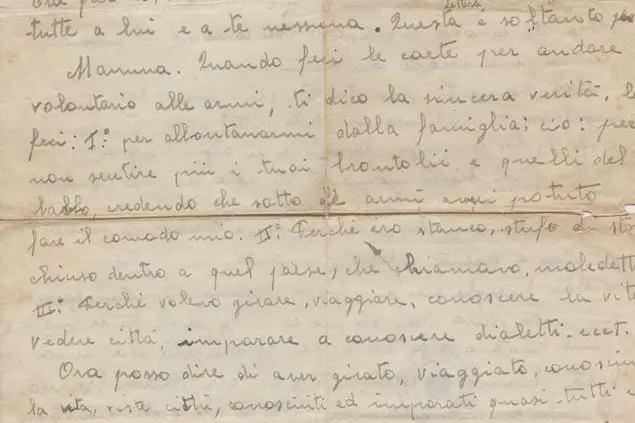 tutte a lui e a te nessuna. Questa lettera è soltanto per
Mamma. Quando feci le carte per andare
volontario alle armi, ti dico la sincera verità, le
feci: I°: per allontanarmi dalla famiglia; cio: per
non sentire più i tuoi brontolii e quelli del
babbo, credendo che sotto le armi avrei potuto
fare il comodo mio. II°: Perché ero stanco, stufo di
chiuso dentro a quel paese, che chiamavo, maledett
III°: Perché volevo girare, viaggiare, conoscere la vit
vedere città, imparare a conoscere dialetti. ecct.
Ora posso dire di aver girato, viaggiato, conosciu
la vita, viste città, conosciuti ed imparati quasi tutti i